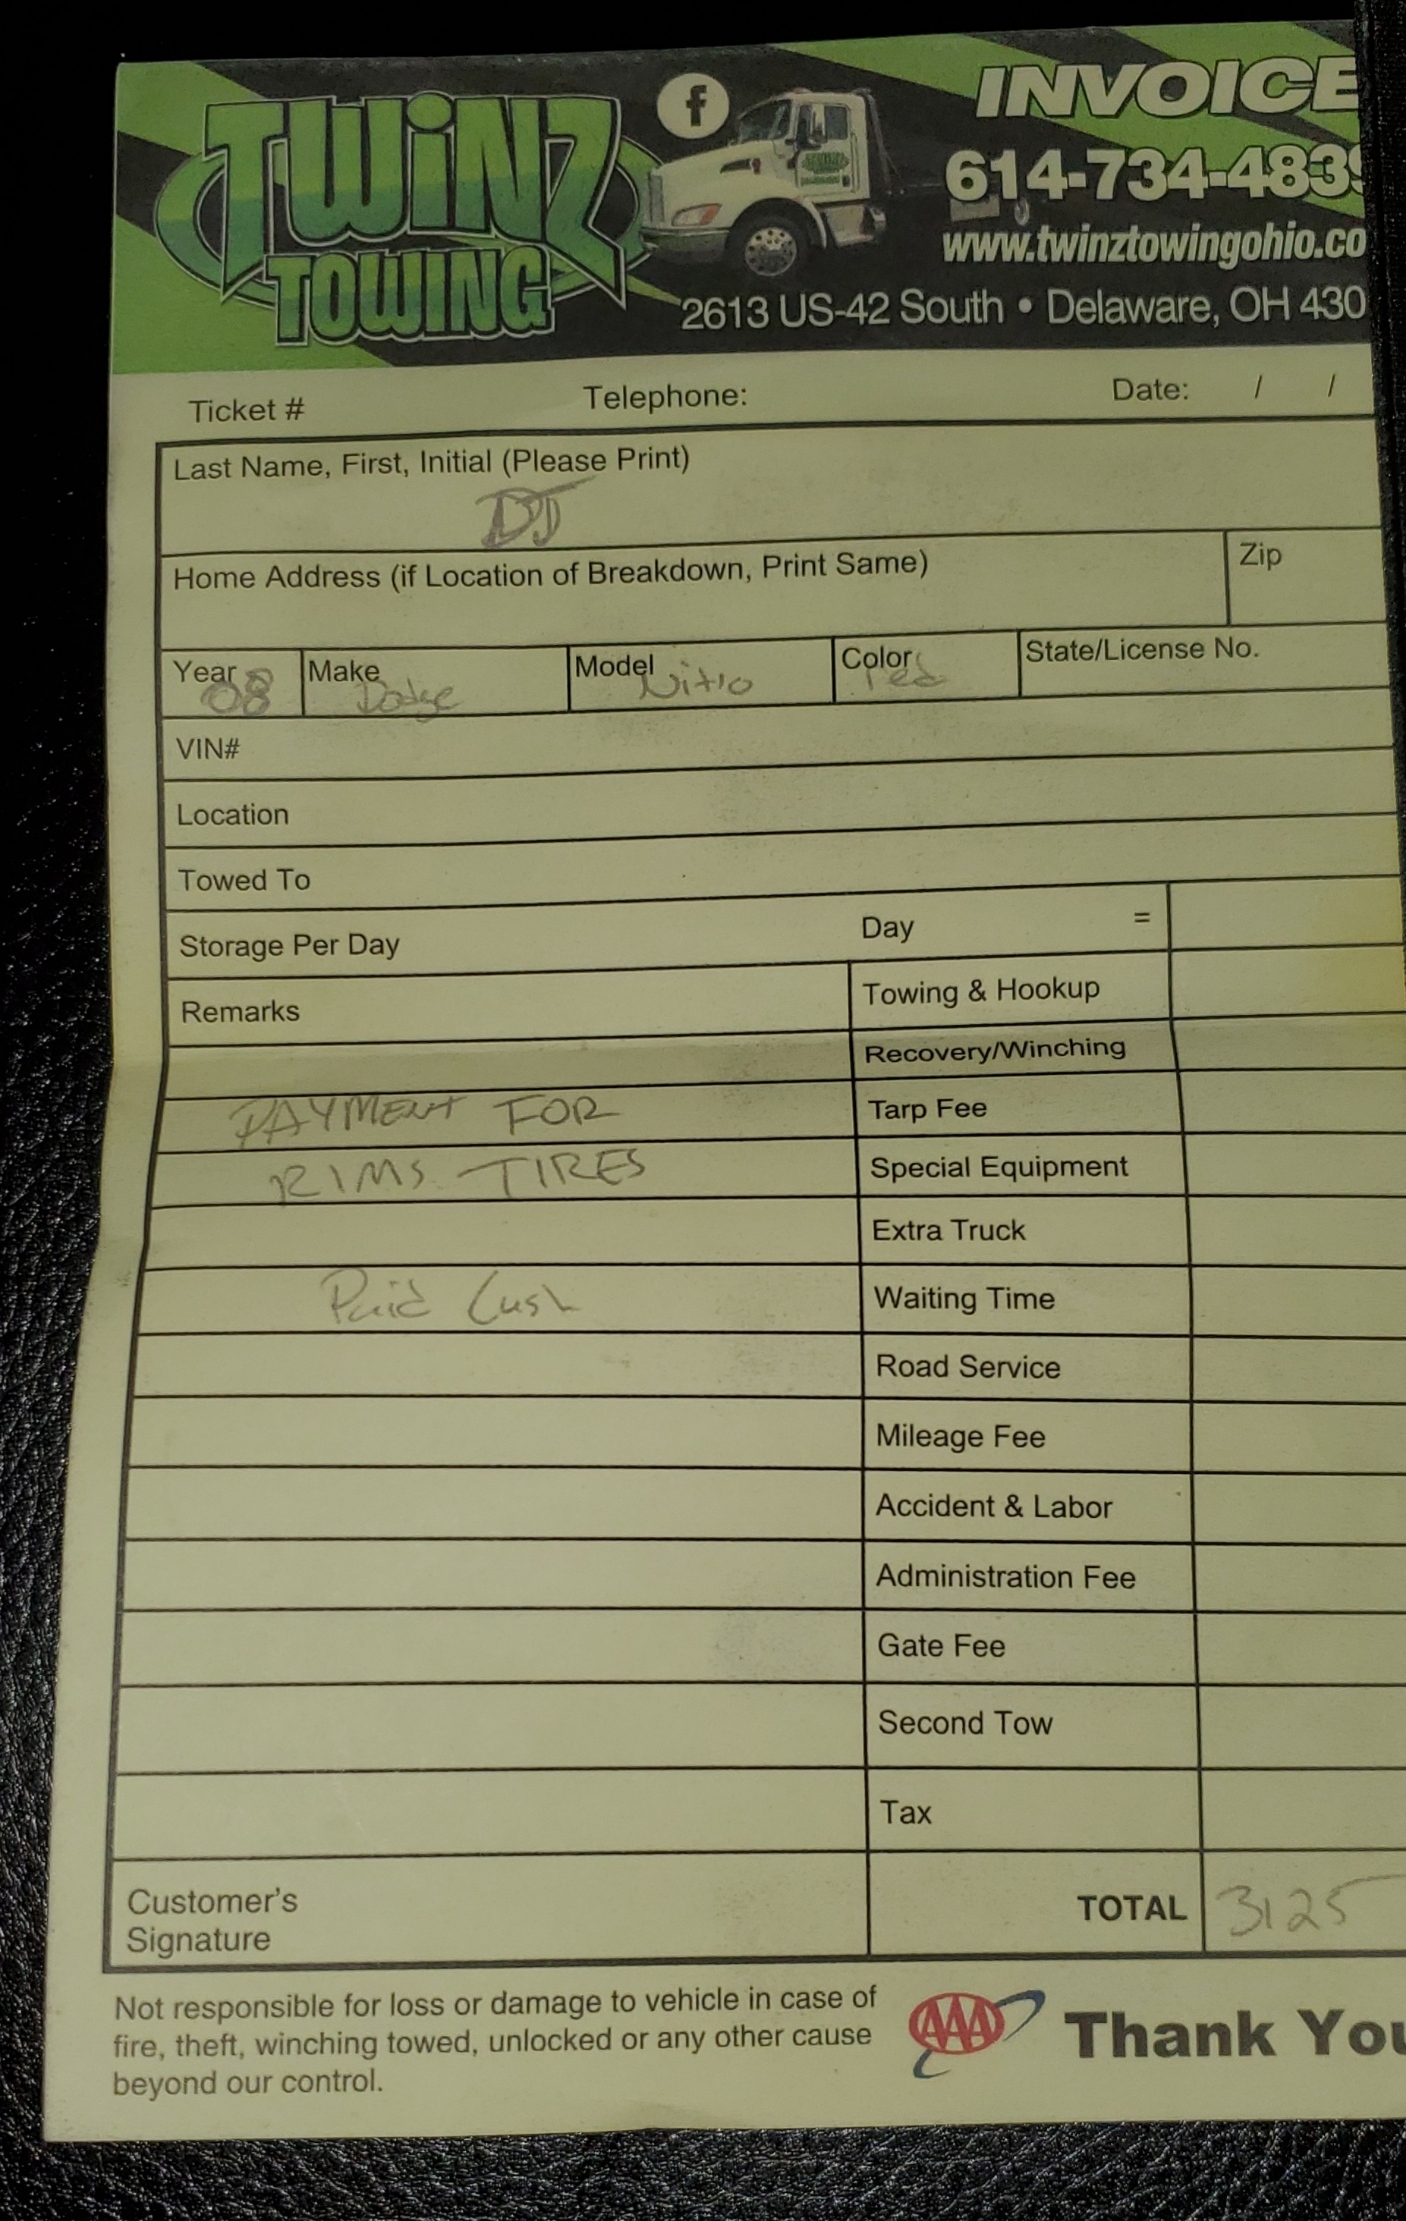 TWiNZ
TOWING
f
INVOICE
614-734-4839
www.twinztowingohio.co
2613 US-42 South • Delaware, OH 430
Ticket # Telephone: Date: / /
Last Name, First, Initial (Please Print)
DJ
Home Address (if Location of Breakdown, Print Same) Zip
Year 08 Make Dodge Model Nitro Color red State/License No.
VIN#
Location
Towed To
Storage Per Day Day =
Remarks Towing & Hookup
Recovery/Winching
PAYMENT FOR Tarp Fee
RIMS TIRES Special Equipment
Extra Truck
Paid Cash Waiting Time
Road Service
Mileage Fee
Accident & Labor
Administration Fee
Gate Fee
Second Tow
Tax
Customer's
Signature
TOTAL 3125
Not responsible for loss or damage to vehicle in case of
fire, theft, winching towed, unlocked or any other cause
beyond our control.
AAA
Thank You